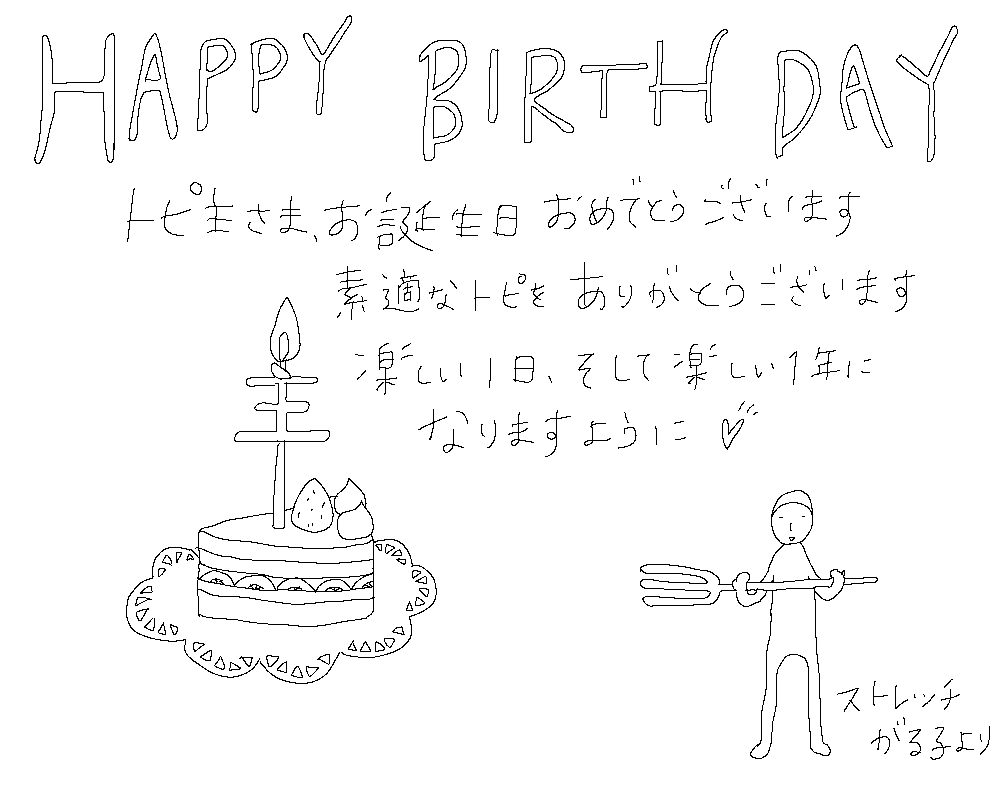 HAPPY BIRTH DAY
トピ主さま、お誕生日 おめでとうございます
素適なトピを ありがとうございます
楽しい1日、そして楽しい1年に
なりますように♡
ストレッチ
がる子より